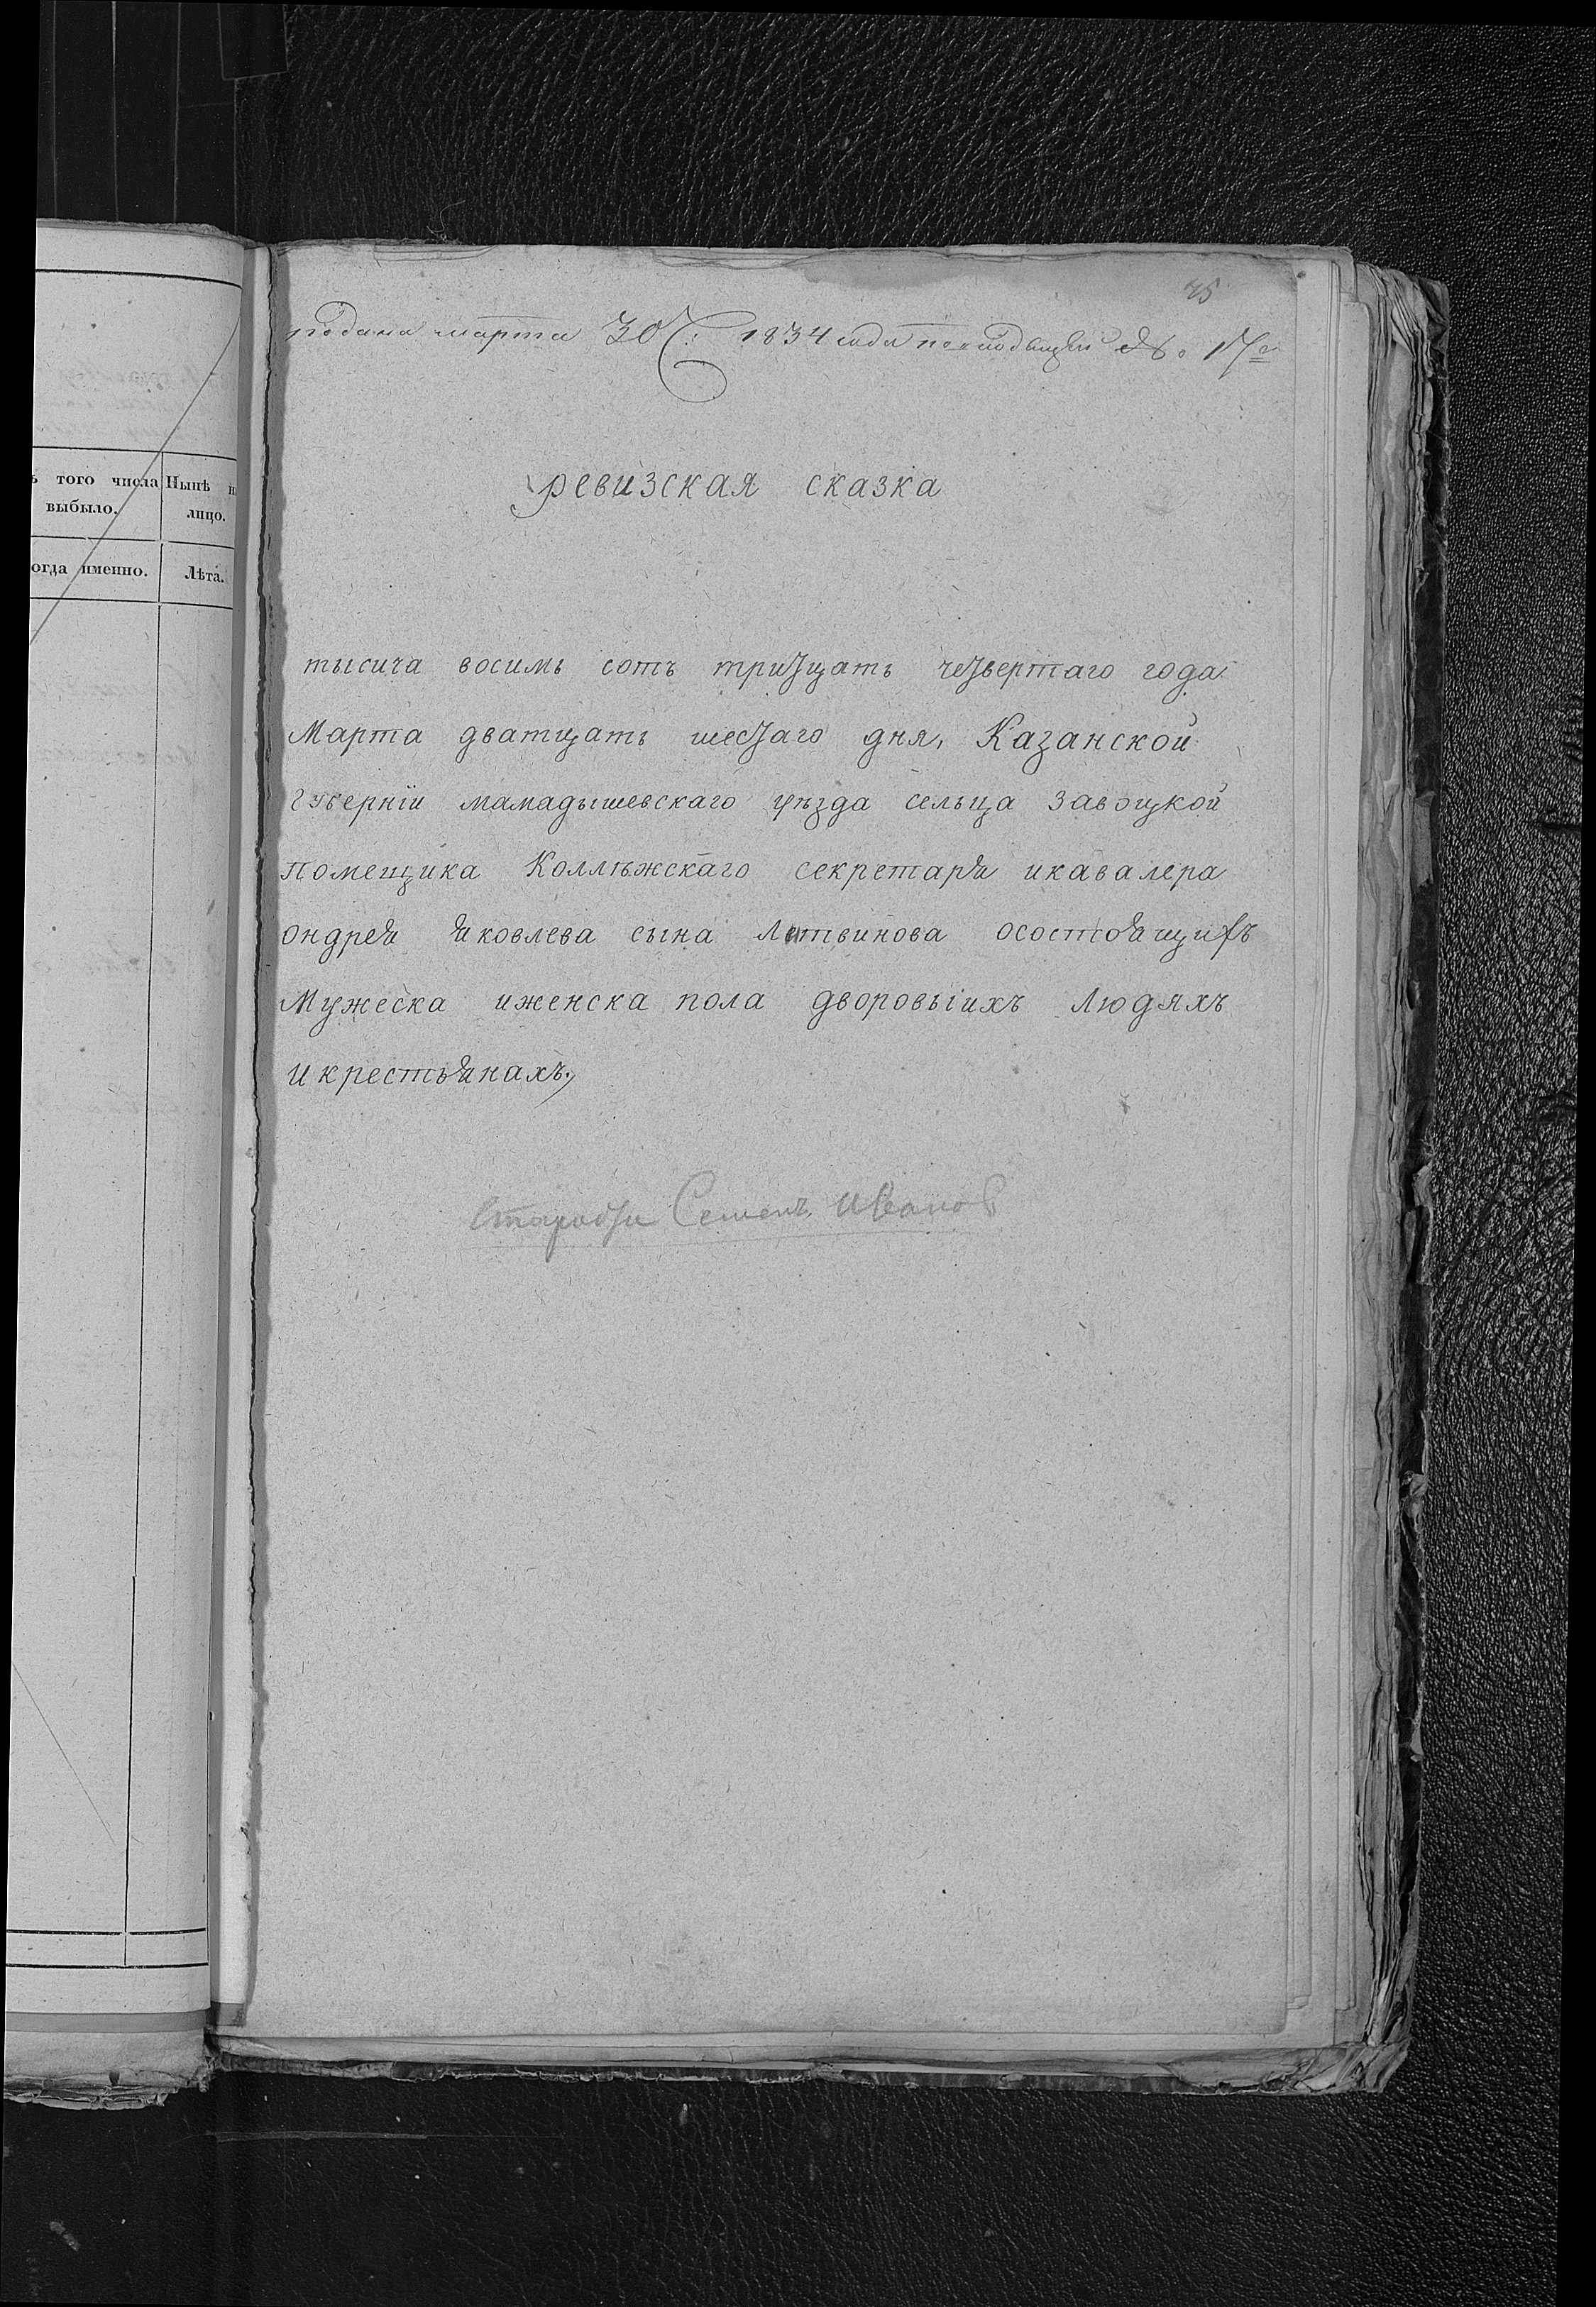 ъ того числа Нынѣ н
выбыло. лицо.
огда именно. Лѣта.
подана марта 30 1834 года №
ревизская сказка
тысича восимь сотъ тритцать четвертаго года
Марта дватцать шестаго дня, Казанской
Губерніи мамадышевскаго уѣзда сельца завоцкой
помещика Коллѣжскаго секретаря икавалера
ондрея яковлева сына Литвинова осостоящихъ
Мужеска иженска пола дворовыихъ людяхъ
и крестьянахъ.
Староста Семенъ Иванов